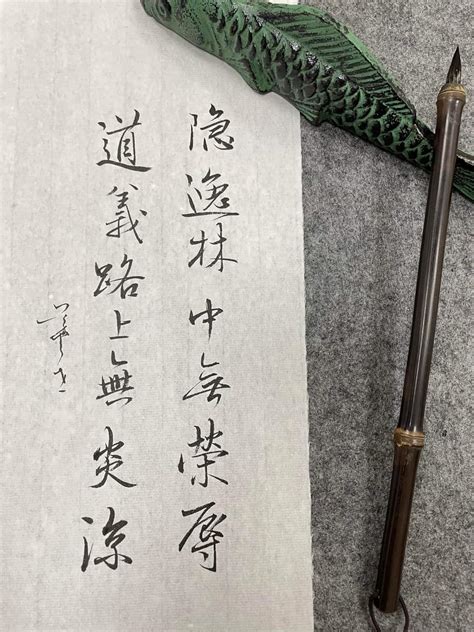 隐逸林中无荣辱
道義路上無炎涼